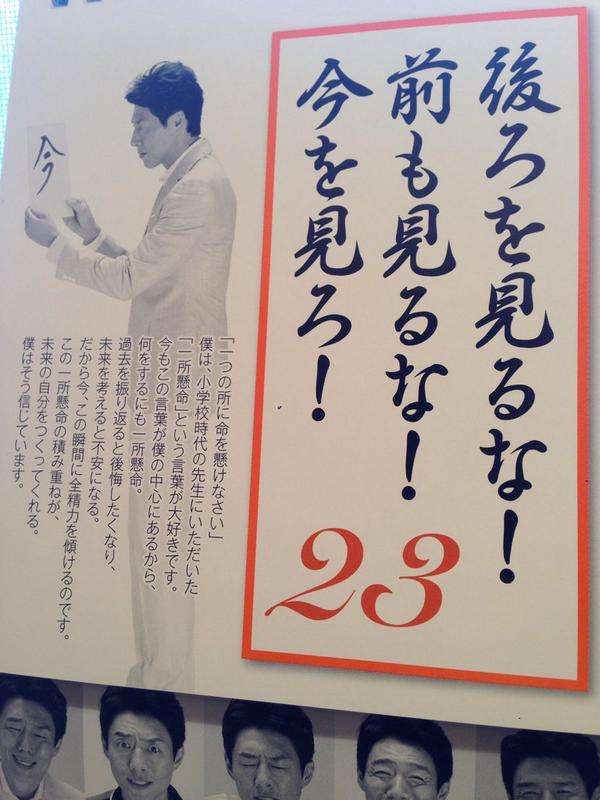 後ろを見るな!
前も見るな!
今を見ろ!
23
今
「一つの所に命を懸けなさい」
僕は、小学校時代の先生にいただいた
「一所懸命」という言葉が大好きです。
今もこの言葉が僕の中心にあるから、
何をするにも一所懸命。
過去を振り返ると後悔したくなり、
未来を考えると不安になる。
だから今、この瞬間に全精力を傾けるのです。
この一所懸命の積み重ねが、
未来の自分をつくってくれる。
僕はそう信じています。